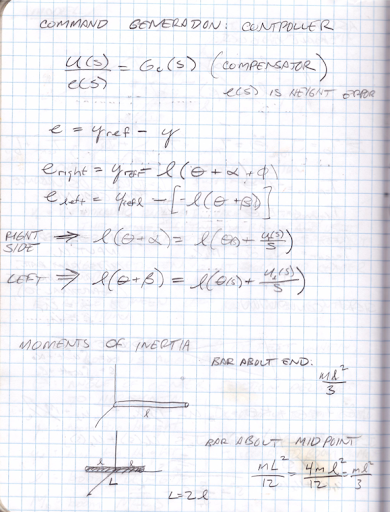 COMMAND GENERATION: CONTROLLER
U(S)/e(S) = Gc(S) (COMPENSATOR)
e(S) IS HEIGHT ERROR
e = yref - y
eright = yref - l(θ + α + φ)
eleft = yref - [-l(θ + β)]
RIGHT SIDE ⇒ l(θ+α) = l(θ(s) + u(s)/S)
LEFT ⇒ l(θ+β) = l(θ(s) + u(s)/S)
MOMENTS OF INERTIA
BAR ABOUT END:
ml²/3
l
BAR ABOUT MIDPOINT
l l
L
mL²/12 = 4ml²/12 = ml²/3
L=2l